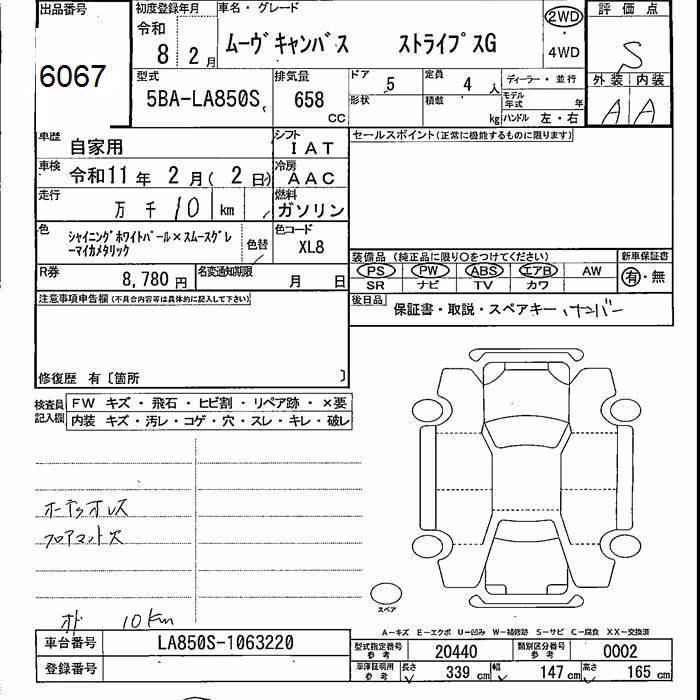 出品番号 6067
初度登録年月 令和 8 2月
車名・グレード ムーヴキャンバス ストライプスG
2WD・4WD
評価点 S
外装 内装
A A
型式 5BA-LA850S
排気量 658 CC
ドア 5
定員 4 人
形状
積載 kg
ディーラー・並行
モデル年式 年
ハンドル 左・右
車歴 自家用
シフト IAT
車検 令和11年 2月(2日)
冷房 AAC
走行 万 千 10 km
燃料 ガソリン
色 シャイニングホワイトパール×スムースグレーマイカメタリック
色替
色コード XL8
R券 8,780円
名変通知期限 月 日
セールスポイント(正常に機能するものに限ります)
装備品(純正品に限り○をつけてください)
PS PW ABS エアB AW
SR ナビ TV カワ
新車保証書 有・無
後日品 保証書・取説・スペアキー ナンバー
注意事項申告欄(不具合内容等は具体的に記入して下さい)
修復歴 有〔箇所 〕
検査員記入欄
FW キズ・飛石・ヒビ割・リペア跡・×要
内装 キズ・汚レ・コゲ・穴・スレ・キレ・破レ
フロアマットス
10km
スペア
A-キズ E-エクボ U-凹み W-補修跡 S-サビ C-腐食 XX-交換済
車台番号 LA850S-1063220
登録番号
型式指定番号参考 20440
類別区分番号参考 0002
車庫証明用参考
長さ 339 cm
幅 147 cm
高さ 165 cm